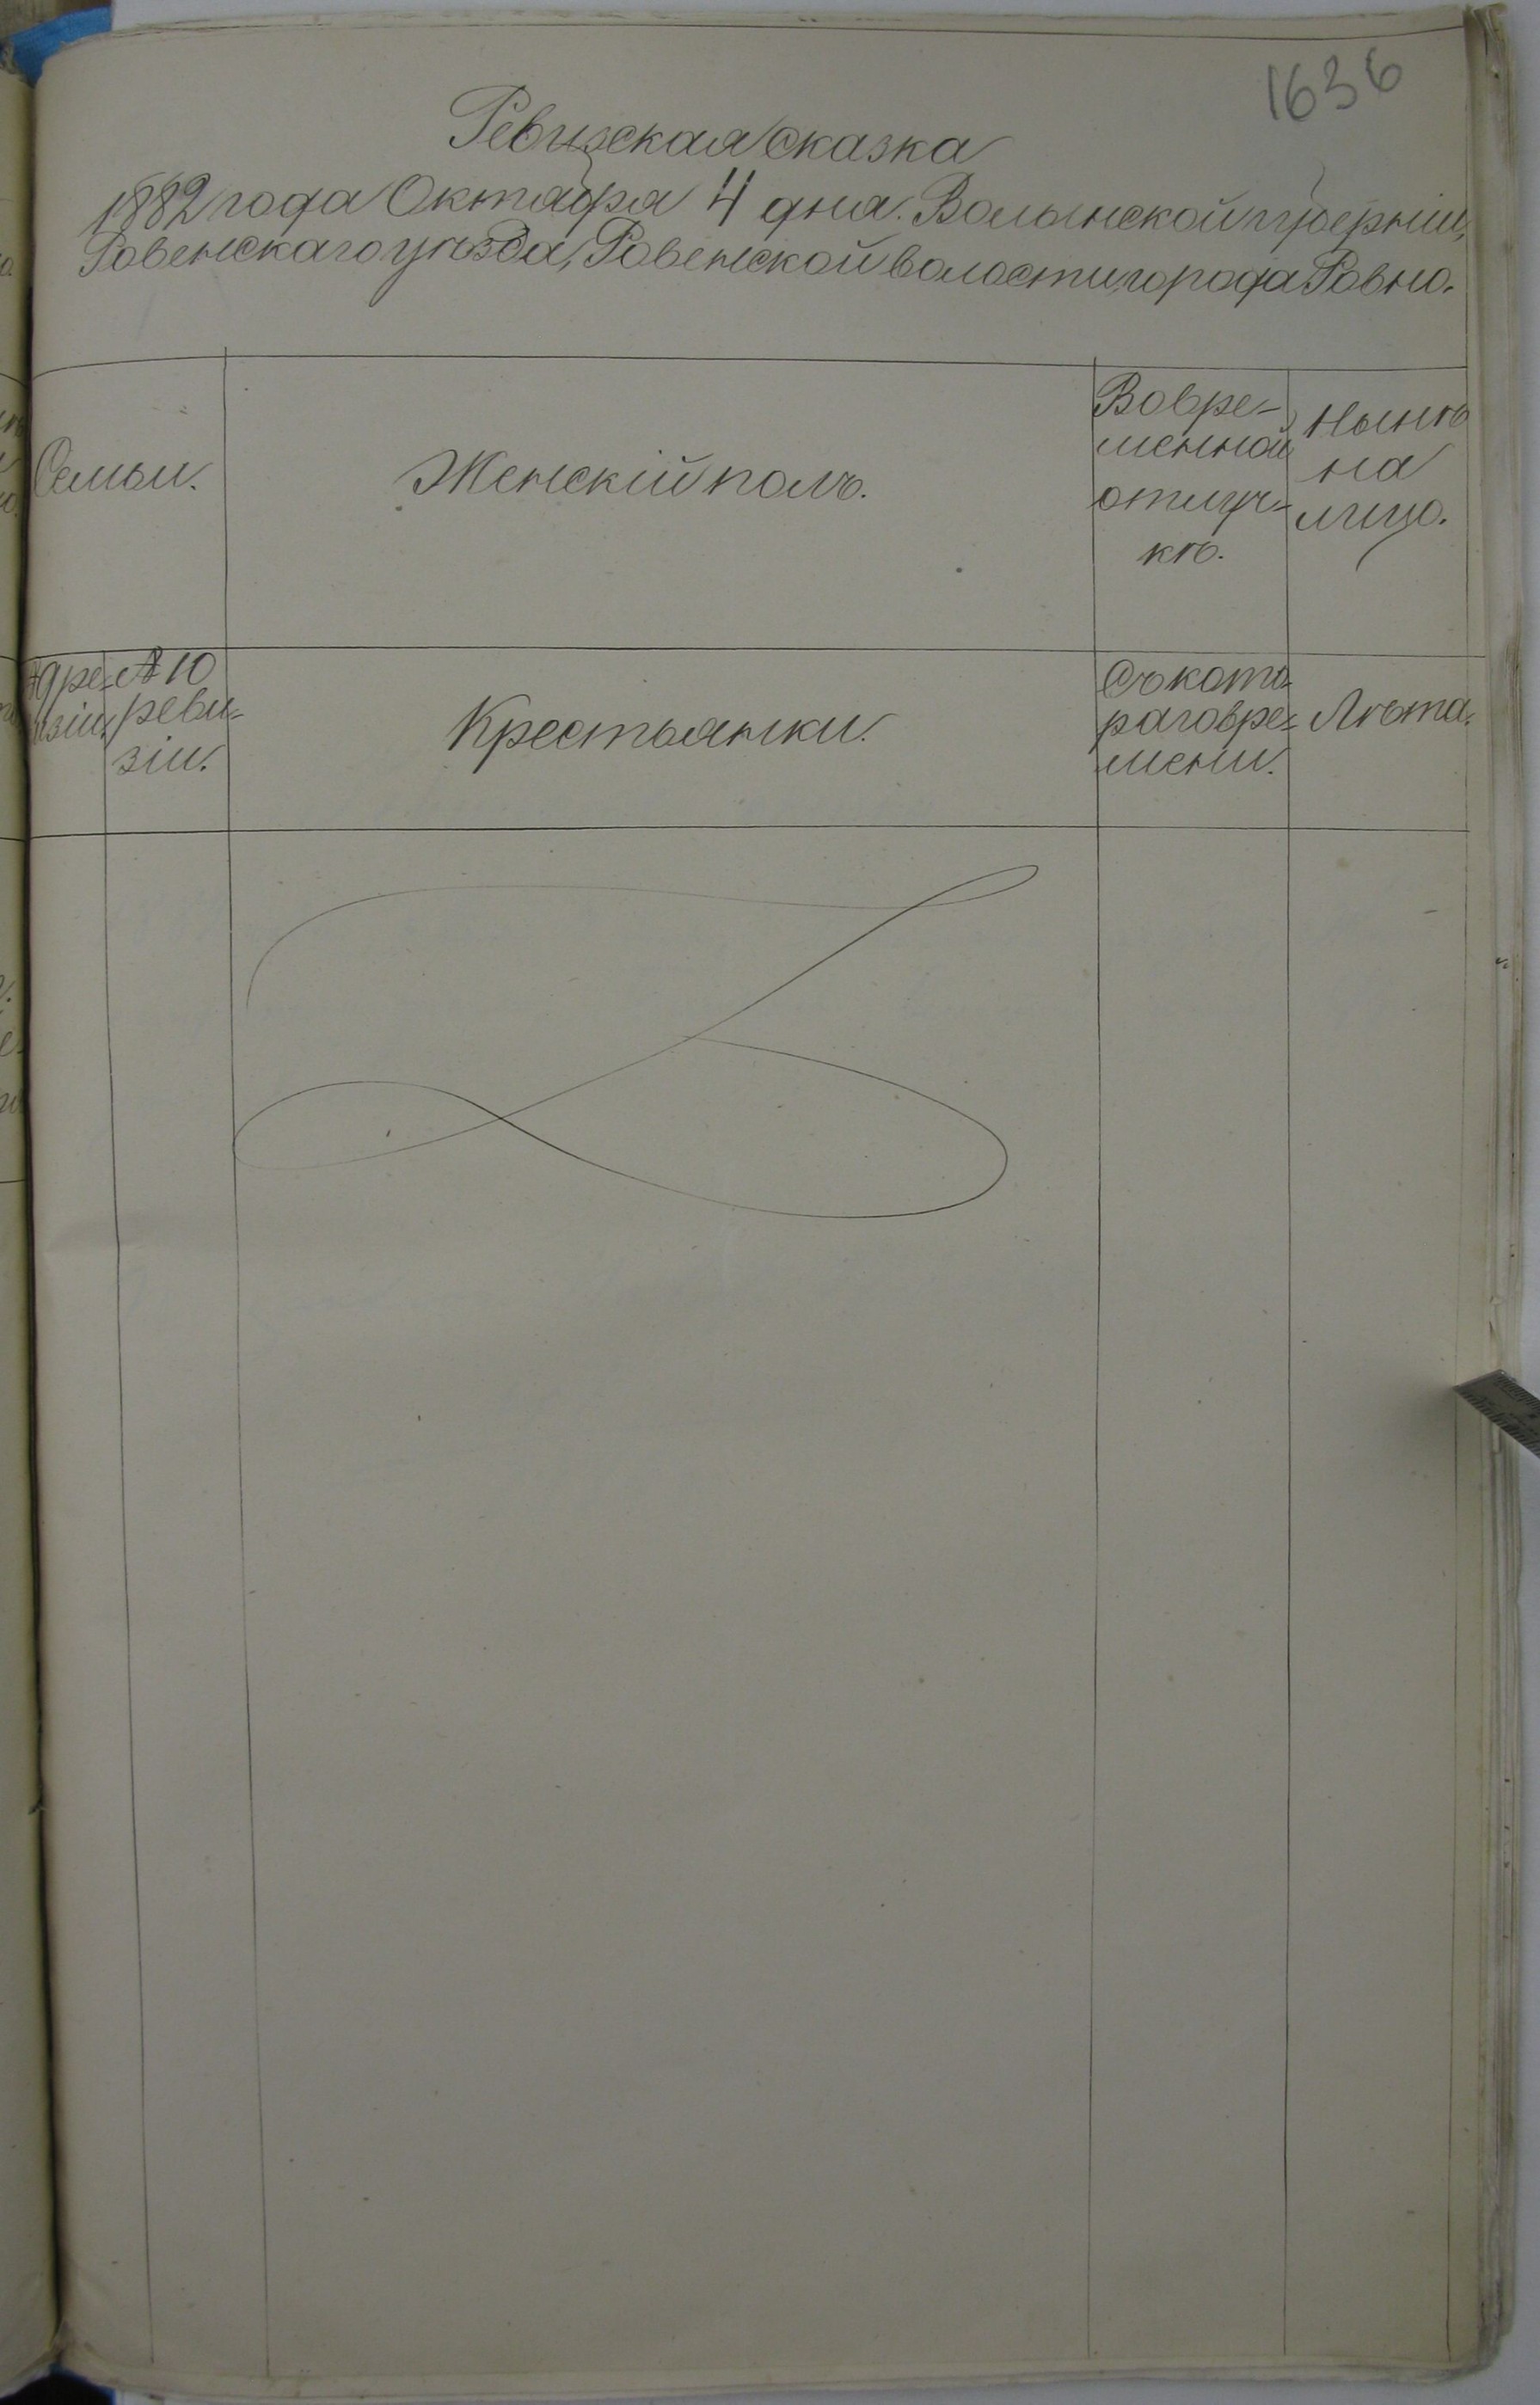 1636
Ревизская сказка
1882 года Октября 4 дня. Волынской губерніи,
Ровенскаго уѣзда, Ровенской волости города Ровно.
Семьи.
Женскій полъ.
Вовре-
менной
отлуч-
кѣ.
Нынѣ
на
лицо.
№ 10
реви-
зіи.
Крестьянки.
Съ кото-
раго вре-
мени.
Лѣта.